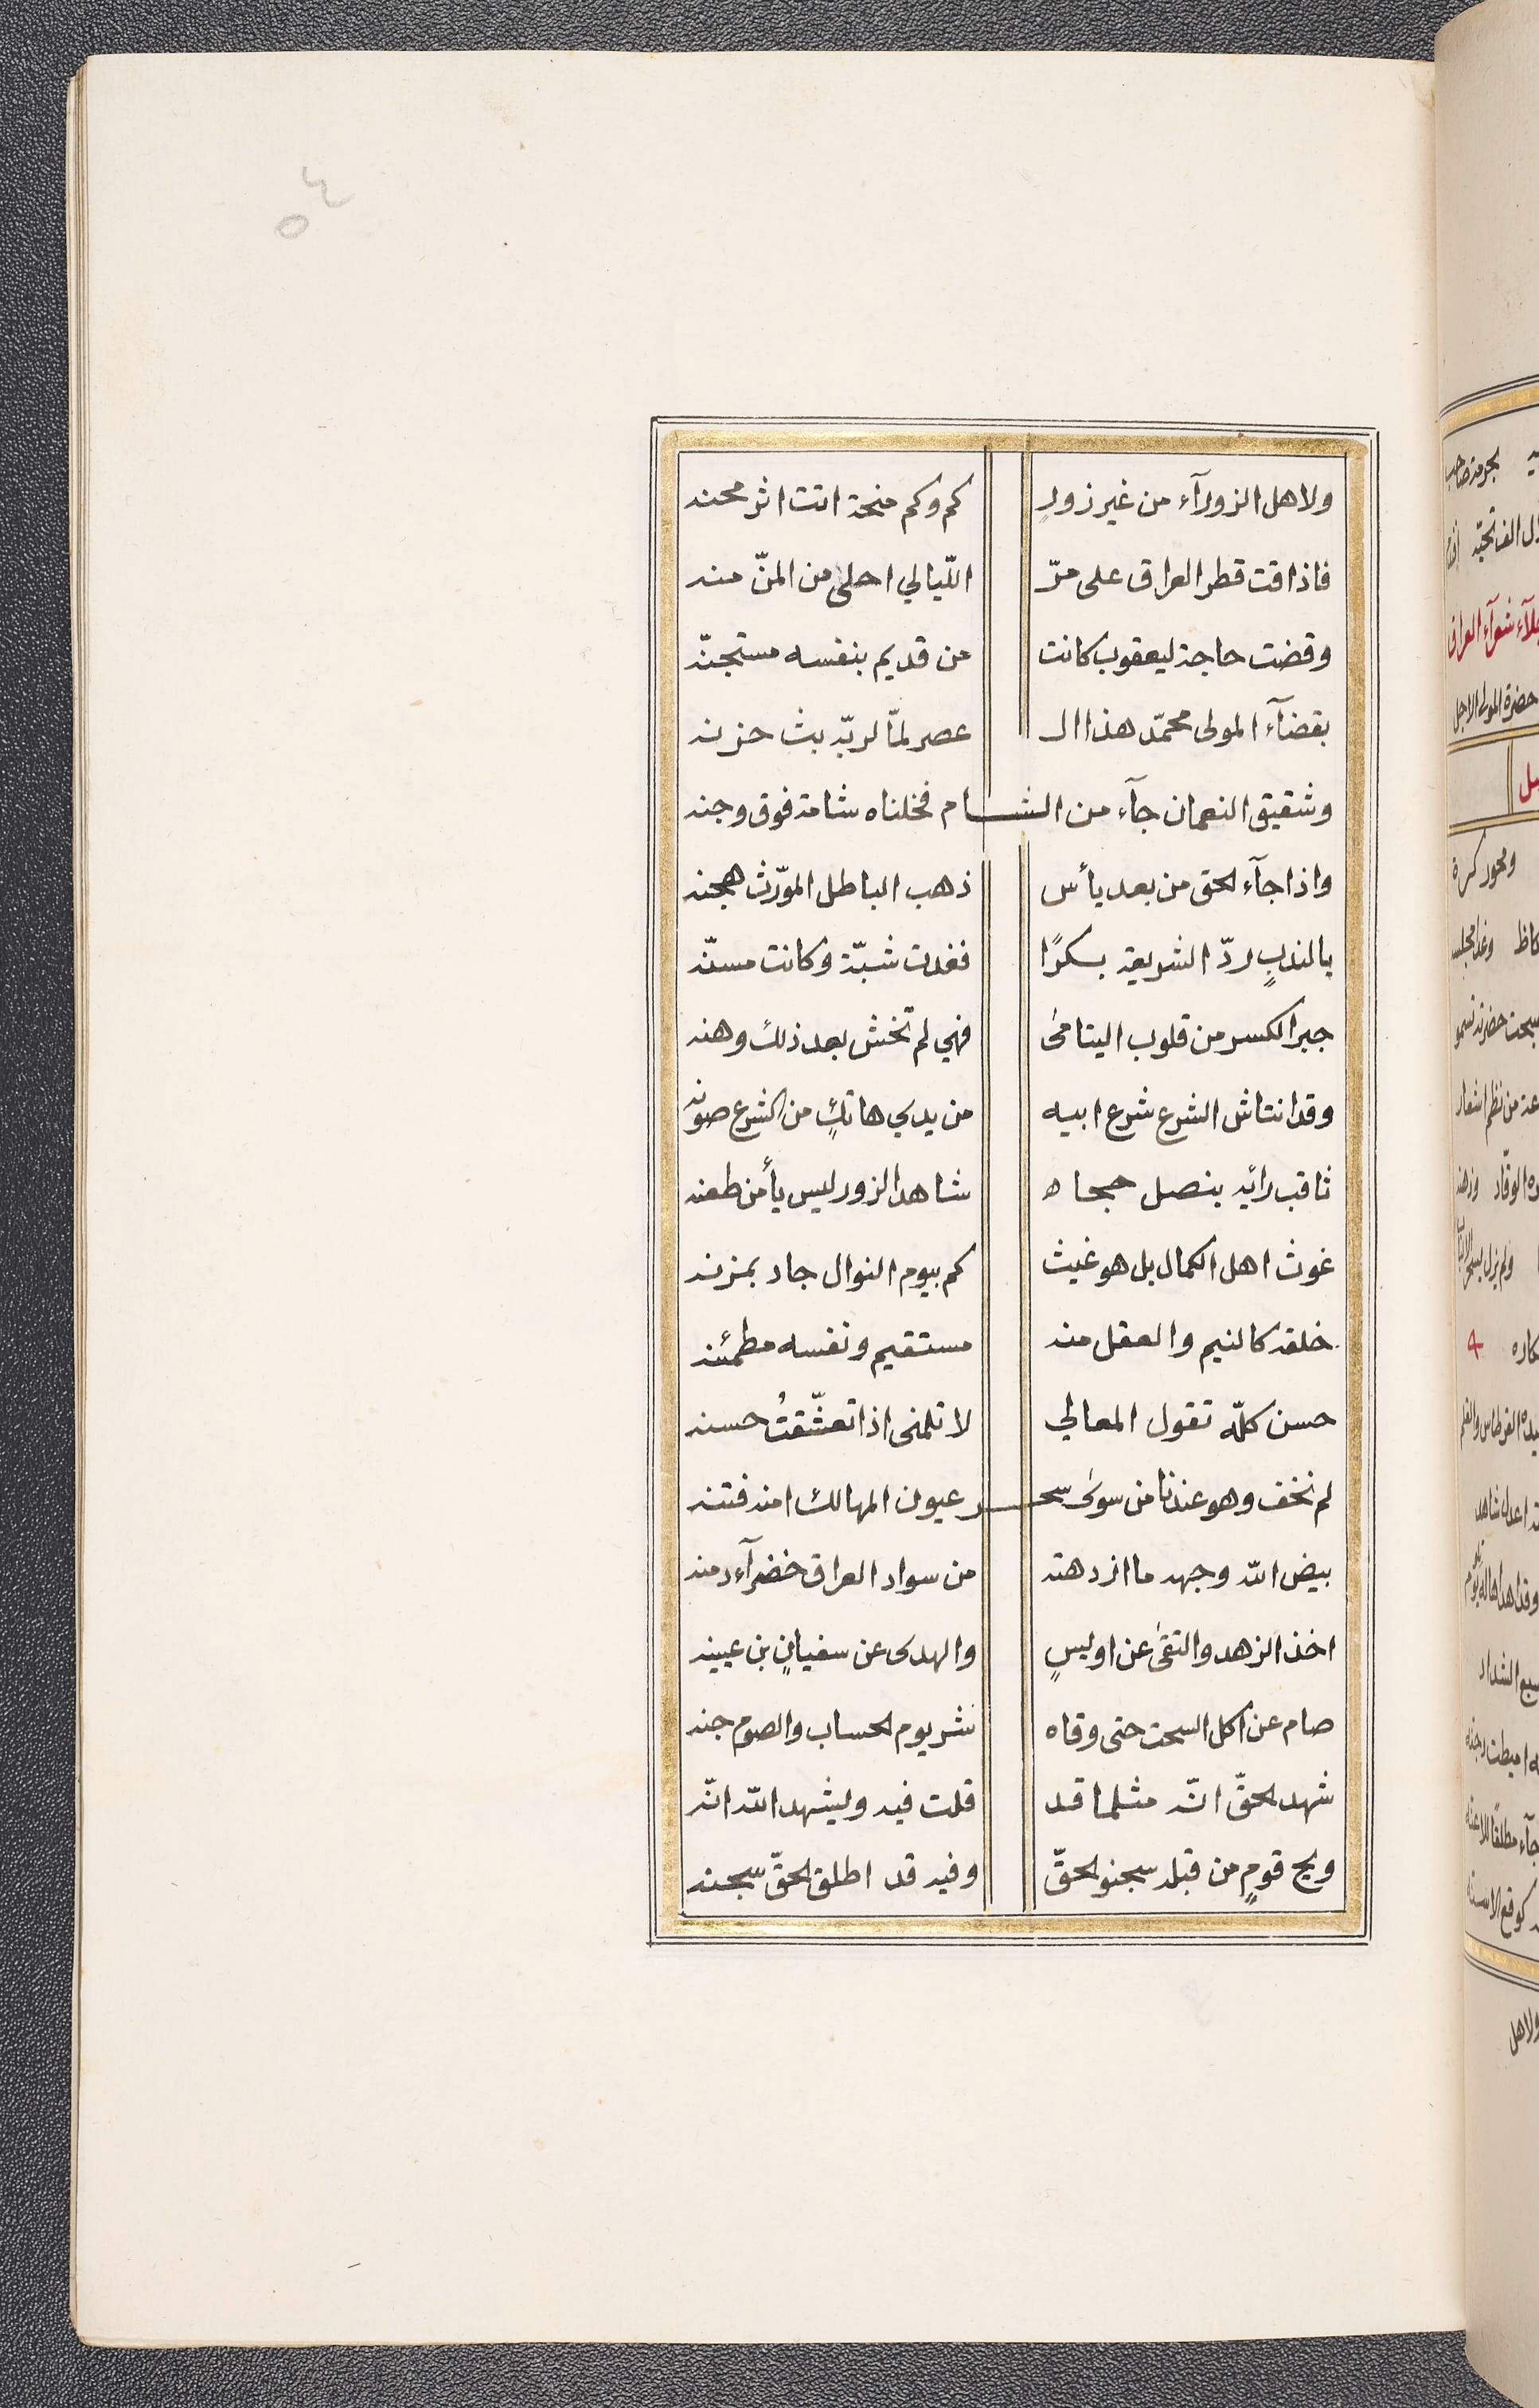 ٤٥
ولاهل الزورآء من غير زورٍ كم وكم منحة اتت اثر محنه
فاذاقت قطر العراق على مرّ اللّيالي احلى من المنّ منه
وقضت حاجة ليعقوب كانت من قديم بنفسه مستجنّه
بقضآء المولى محمّد هذا الـ عصر لمّا لربّه بث حزنه
وشقيق النعمان جآء من الشام فخلناه شامة فوق وجنه
واذا جآء الحق من بعد يأس ذهب الباطل المورّث هجنه
يا لندبٍ ردّ الشريعة بكرًا فغدت شبّة وكانت مسنّه
جبر الكسر من قلوب اليتامىٰ فهي لم تخش بعد ذلك وهنه
وقد انتاش الشرع شرع ابيه من يدي هاتكٍ من الشرع صونه
ثاقب رائه بنصل حجاه شاهد الزور ليس يأمن طعنه
غوث اهل الكمال بل هو غيث كم بيوم النوال جاد بمزنه
خلقه كالنيم والعقل منه مستقيم ونفسه مطمئنه
حسن كلّه تقول المعالي لا تلمنى اذا تعشّقتُ حسنه
لم نخف وهو عندنا من سوىٰ سحر عيون المهالك امنه فتنه
بيض الله وجهه ما ازدهته من سواد العراق خضرآء دمنه
اخذ الزهد والتقىٰ عن اويسٍ والهدى عن سفيانٍ بن عيينه
صام عن اكل السحت حتى وقاه شر يوم الحساب والصوم جنه
شهد الحقّ انّه مثلما قد قلت فيه وليشهد الله انّه
ويح قومٍ من قبله سجنوا الحقّ وفيه قد اطلق الحقّ سجنه